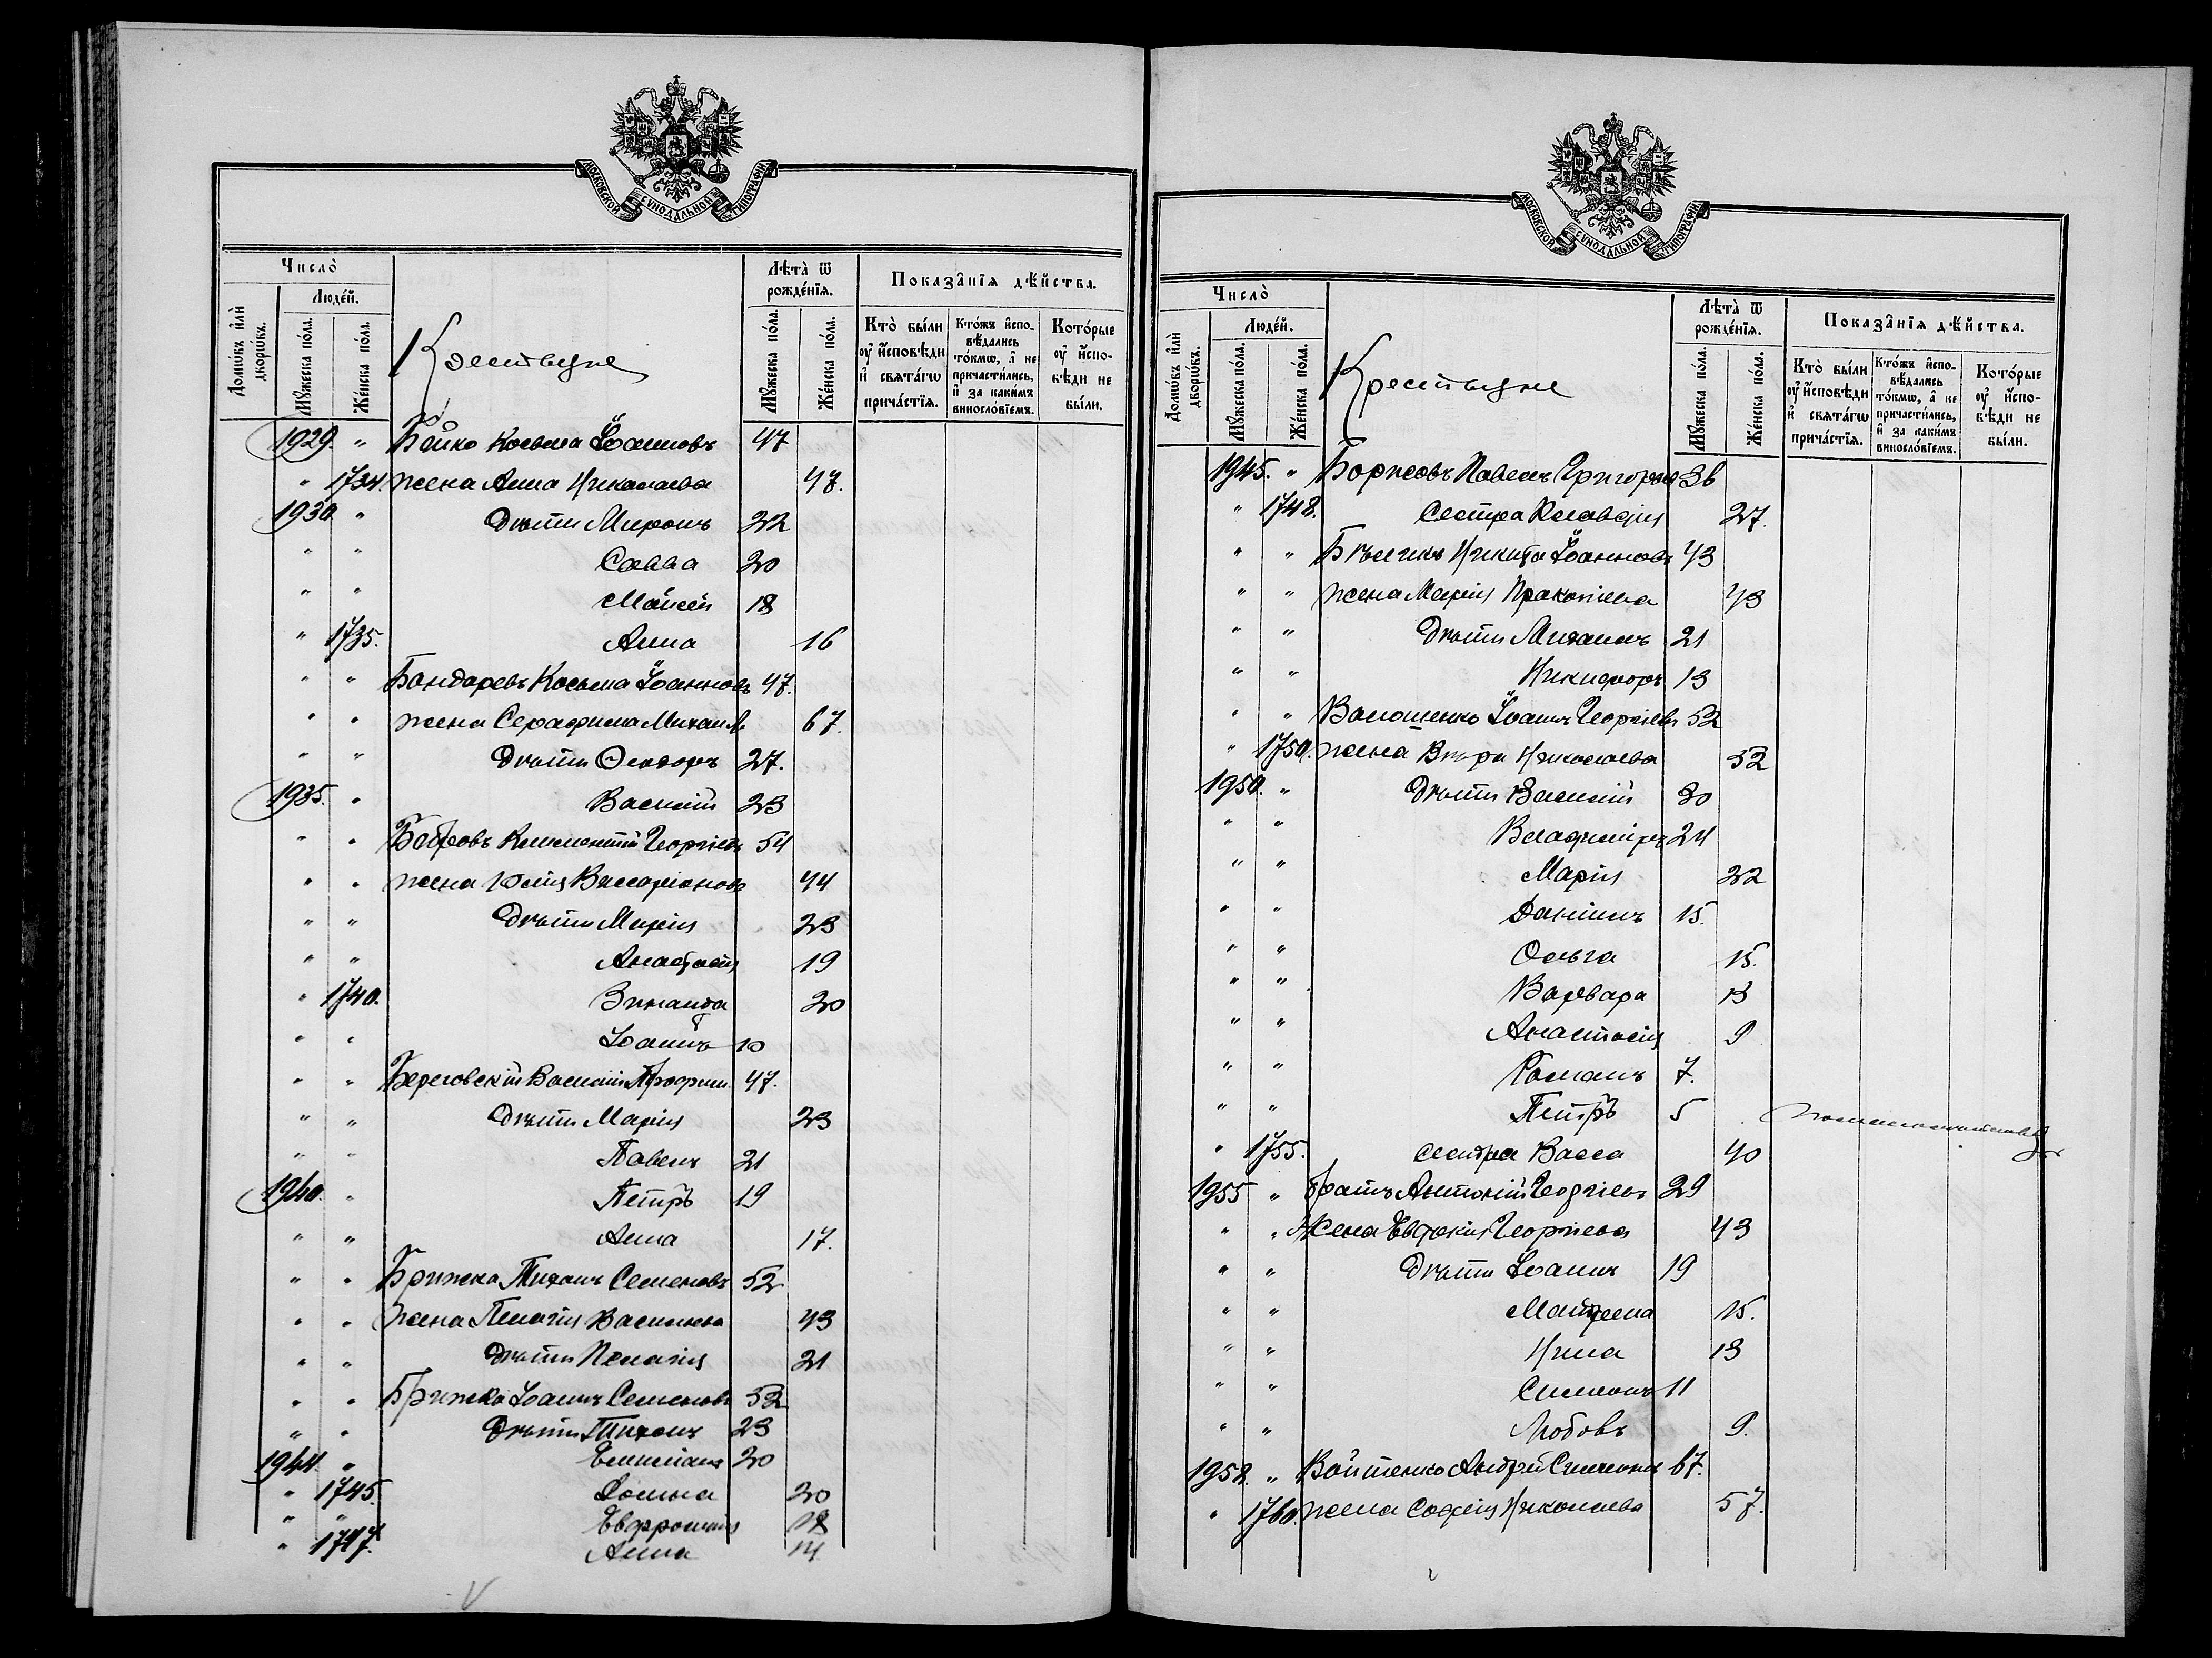 МОСКОВСКОЙ СѴНОДАЛЬНОЙ ТИПОГРАФІИ
Число̀
Людей.
Домѡвъ и҆лѝ дворѡвъ.
Мꙋжеска по́ла.
Же́нска по́ла.
Крестьяне
Лѣ́та ѿ рожде́нїѧ.
Мꙋжеска по́ла.
Же́нска по́ла.
Показа̂нїѧ дѣ́йства.
Кто̀ бы́ли ᲂу҆ и҆́сповѣди и҆ свѧта́гѡ прича́стїѧ.
Кто́жъ и҆спо-вѣ́дались то́кмѡ, а҆ не причасти́лись, и҆ за каки́мъ виносло́вїемъ.
Кото́рые ᲂу҆ и҆́спо-вѣди не бы́ли.
1929. " Бойко Косьма Іоанновъ 47
" 1734. жена Анна Николаева 47.
1930 " Дѣти Миронъ 22
" " Савва 20
" " Моисей 18
" 1735. Анна 16
" " Бондаревъ Косьма Іоанновъ 47.
" " жена Серафима Михаил. 67.
" " Дѣти Ѳеодоръ 27.
1935. " Василій 23
" " Бобровъ Климентій Георгіевъ 54
" " жена Юлія Виссаріонова 44
" " Дѣти Марія 23
" " Анастасія 19
" 1740. Зинаида 20
" " Іоаннъ 10
" " Береговскій Василій Трофим. 47.
" " Дѣти Марія 23
" " Павелъ 21
1940. " Петръ 19
" " Анна 17.
" " Брижка Тихонъ Семеновъ 52
" " жена Пелагія Васильева 43
" " Дѣти Пелагія 21
" " Брижка Іоаннъ Семеновъ 52
" " Дѣти Тихонъ 23
1944. " Емиліанъ 20
" 1745. Домна 20
" " Евфросинія 18
" 1747. Анна 14
МОСКОВСКОЙ СѴНОДАЛЬНОЙ ТИПОГРАФІИ
Число̀
Людей.
Домѡвъ и҆лѝ дворѡвъ.
Мꙋжеска по́ла.
Же́нска по́ла.
Крестьяне
Лѣ́та ѿ рожде́нїѧ.
Мꙋжеска по́ла.
Же́нска по́ла.
Показа̂нїѧ дѣ́йства.
Кто̀ бы́ли ᲂу҆ и҆́сповѣди и҆ свѧта́гѡ прича́стїѧ.
Кто́жъ и҆спо-вѣ́дались то́кмѡ, а҆ не причасти́лись, и҆ за каки́мъ виносло́вїемъ.
Кото́рые ᲂу҆ и҆́спо-вѣди не бы́ли.
1945. " Борисовъ Павелъ Григорьев 36
" 1748. Сестра Клавдія 27.
" " Бѣликъ Никита Іоанновъ 43
" " жена Марія Прокопіева 43
" " Дѣти Михаилъ 21
" " Никифоръ 13
" " Волошенко Іоаннъ Георгіевъ 52
" 1750. жена Вѣра Николаева 52
1950. " Дѣти Василій 30
" " Владиміръ 24
" " Марія 22
" " Даніилъ 15.
" " Ольга 15.
" " Варвара 13
" " Анастасія 9
" " Романъ 7.
" " Петръ 5
" 1755. сестра Васса 40
1955 " братъ Антоній Георгіевъ 29
" " Жена Евдокія Георгіева 43
" " Дѣти Іоаннъ 19
" " Матрена 15.
" " Нина 13
" " Симеонъ 11
" " Любовь 9.
1958. " Войтенко Андрей Симеонов 67.
" 1760. жена Софія Николаева 57.